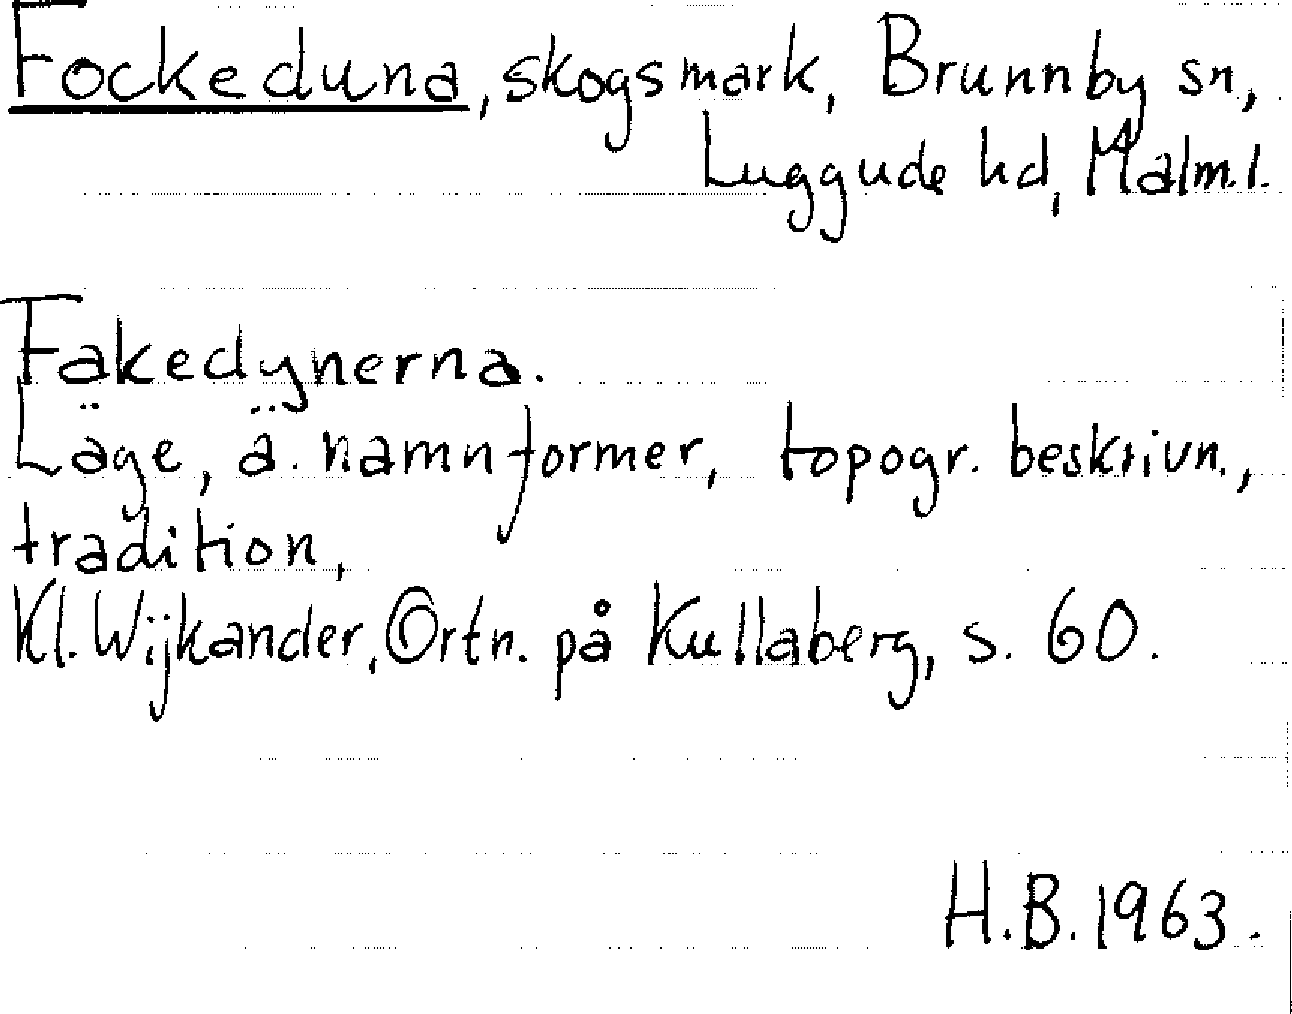 Fockeduna, skogsmark, Brunnby sn,
Luggude hd, Malm.l.
Fakedynerna.
Läge, ä. namnformer, topogr. beskrivn.,
tradition,
Kl. Wijkander, Ortn. på Kullaberg, s. 60.
H.B. 1963.